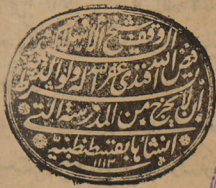 وقف شيخ الاسلام
فيض الله افندي غفر الله له ولوالديه
بشرط ان لا يخرج من المدرسة التي
انشأها بقسطنطنية
١١١٢